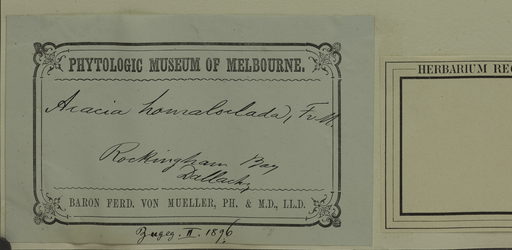 PHYTOLOGIC MUSEUM OF MELBOURNE.
Acacia homaloclada, F.v.M.
Rockingham Bay
Dallachy
BARON FERD. VON MUELLER, PH. & M.D., LL.D.
Zugeg. II. 1896
HERBARIUM REG